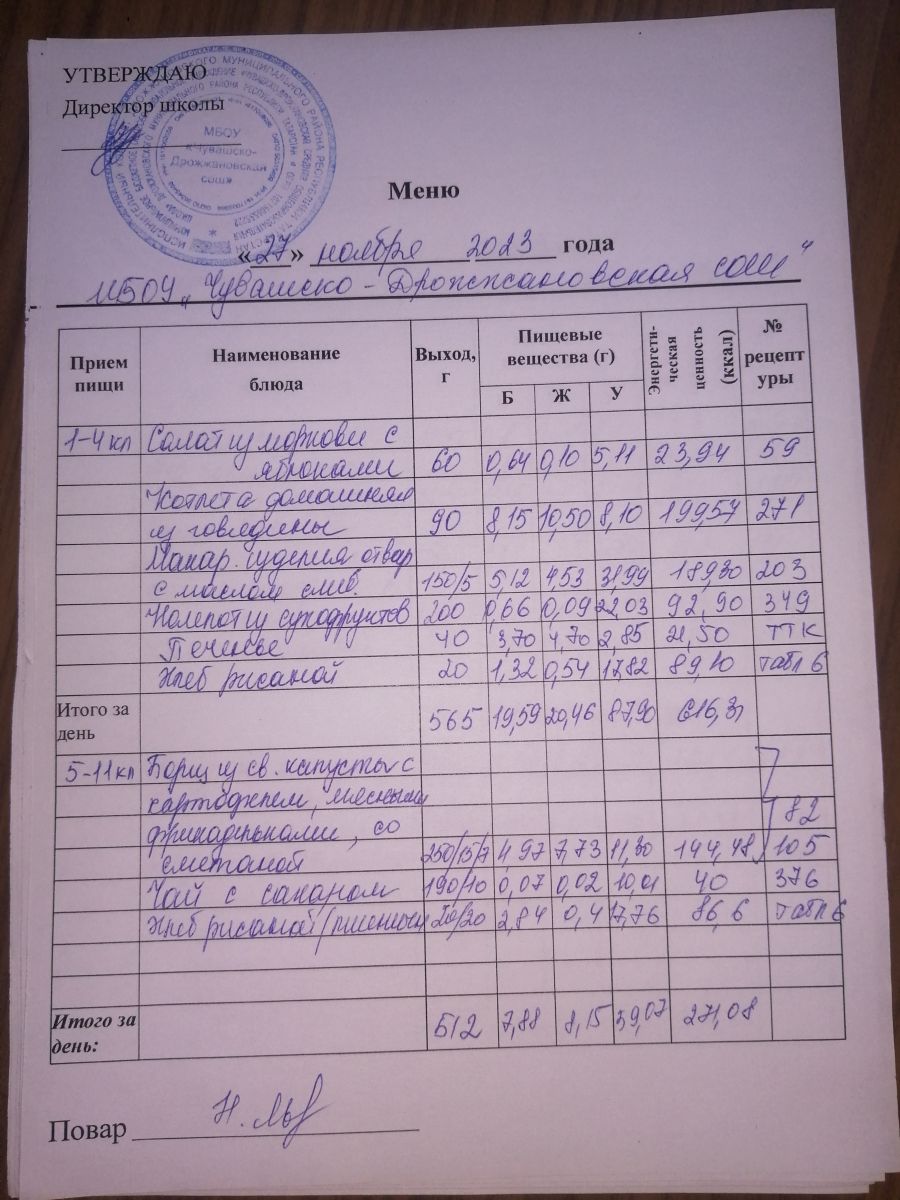 УТВЕРЖДАЮ
Директор школы
МБОУ
«Чувашско-
Дрожжановская
сош»
Меню
«27» ноября 2023 года
МБОУ „Чувашско - Дрожжановская сош"
Прием пищи Наименование блюда Выход, г Пищевые вещества (г) Энергети-ческая ценность (ккал) № рецептуры
Б Ж У
1-4 кл Салат из моркови с
яблоками 60 0,64 0,10 5,11 23,94 59
Котлета домашняя
из говядины 90 8,15 10,50 8,10 199,57 271
Макар. изделия отвар
с маслом слив. 150/5 5,12 4,53 31,99 189,30 203
Компот из сухофруктов 200 0,66 0,09 22,03 92,90 349
Печенье 40 3,70 4,70 2,85 21,50 ТТК
Хлеб рисаной 20 1,32 0,54 17,82 89,10 табл 6
Итого за
день 565 19,59 20,46 87,90 616,31
5-11 кл Борщ из св. капусты с
картофелем, мясными
фрикадельками, со 82
сметаной 250/15/7 4,97 7,73 11,30 144,48 105
Чай с сахаром 190/10 0,07 0,02 10,01 40 376
Хлеб рисаной/пшеничн 20/20 2,84 0,4 17,76 86,6 табл 6
Итого за
день: 512 7,88 8,15 39,07 271,08
Повар